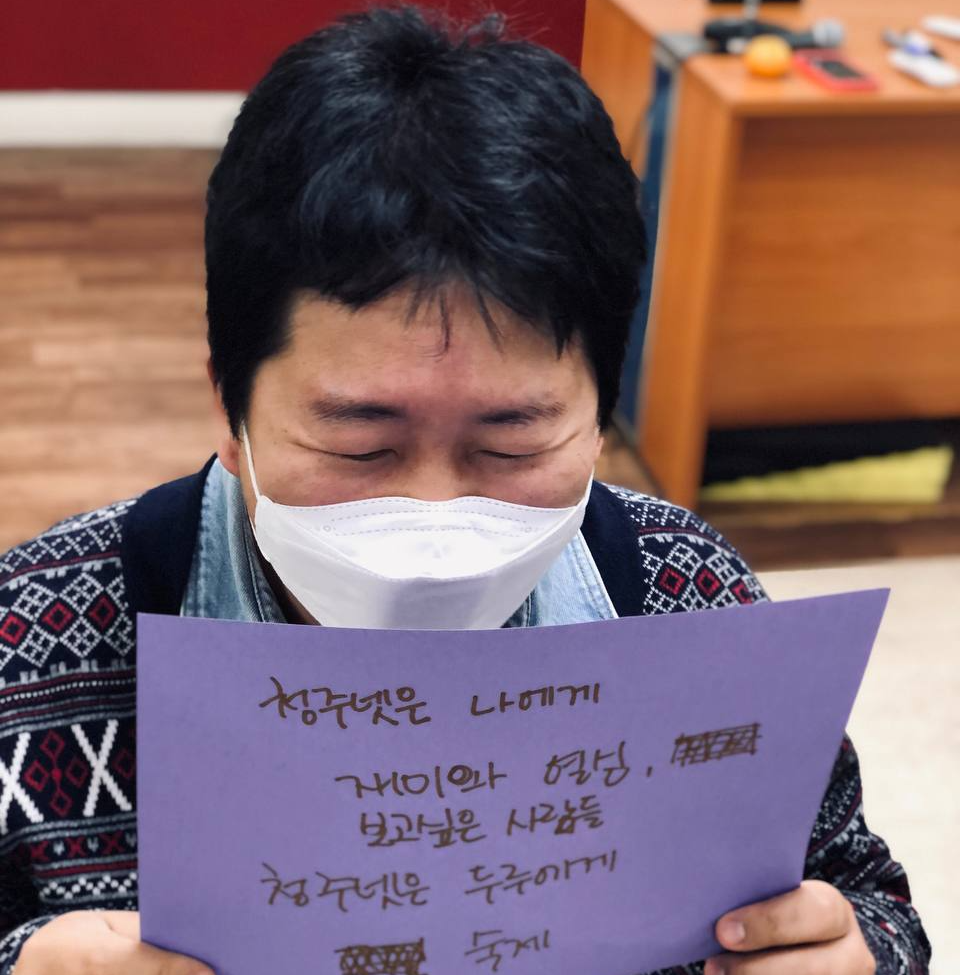 청주넷은 나에게
재미와 열심,
보고싶은 사람들
청주넷은 두루에게
숙제